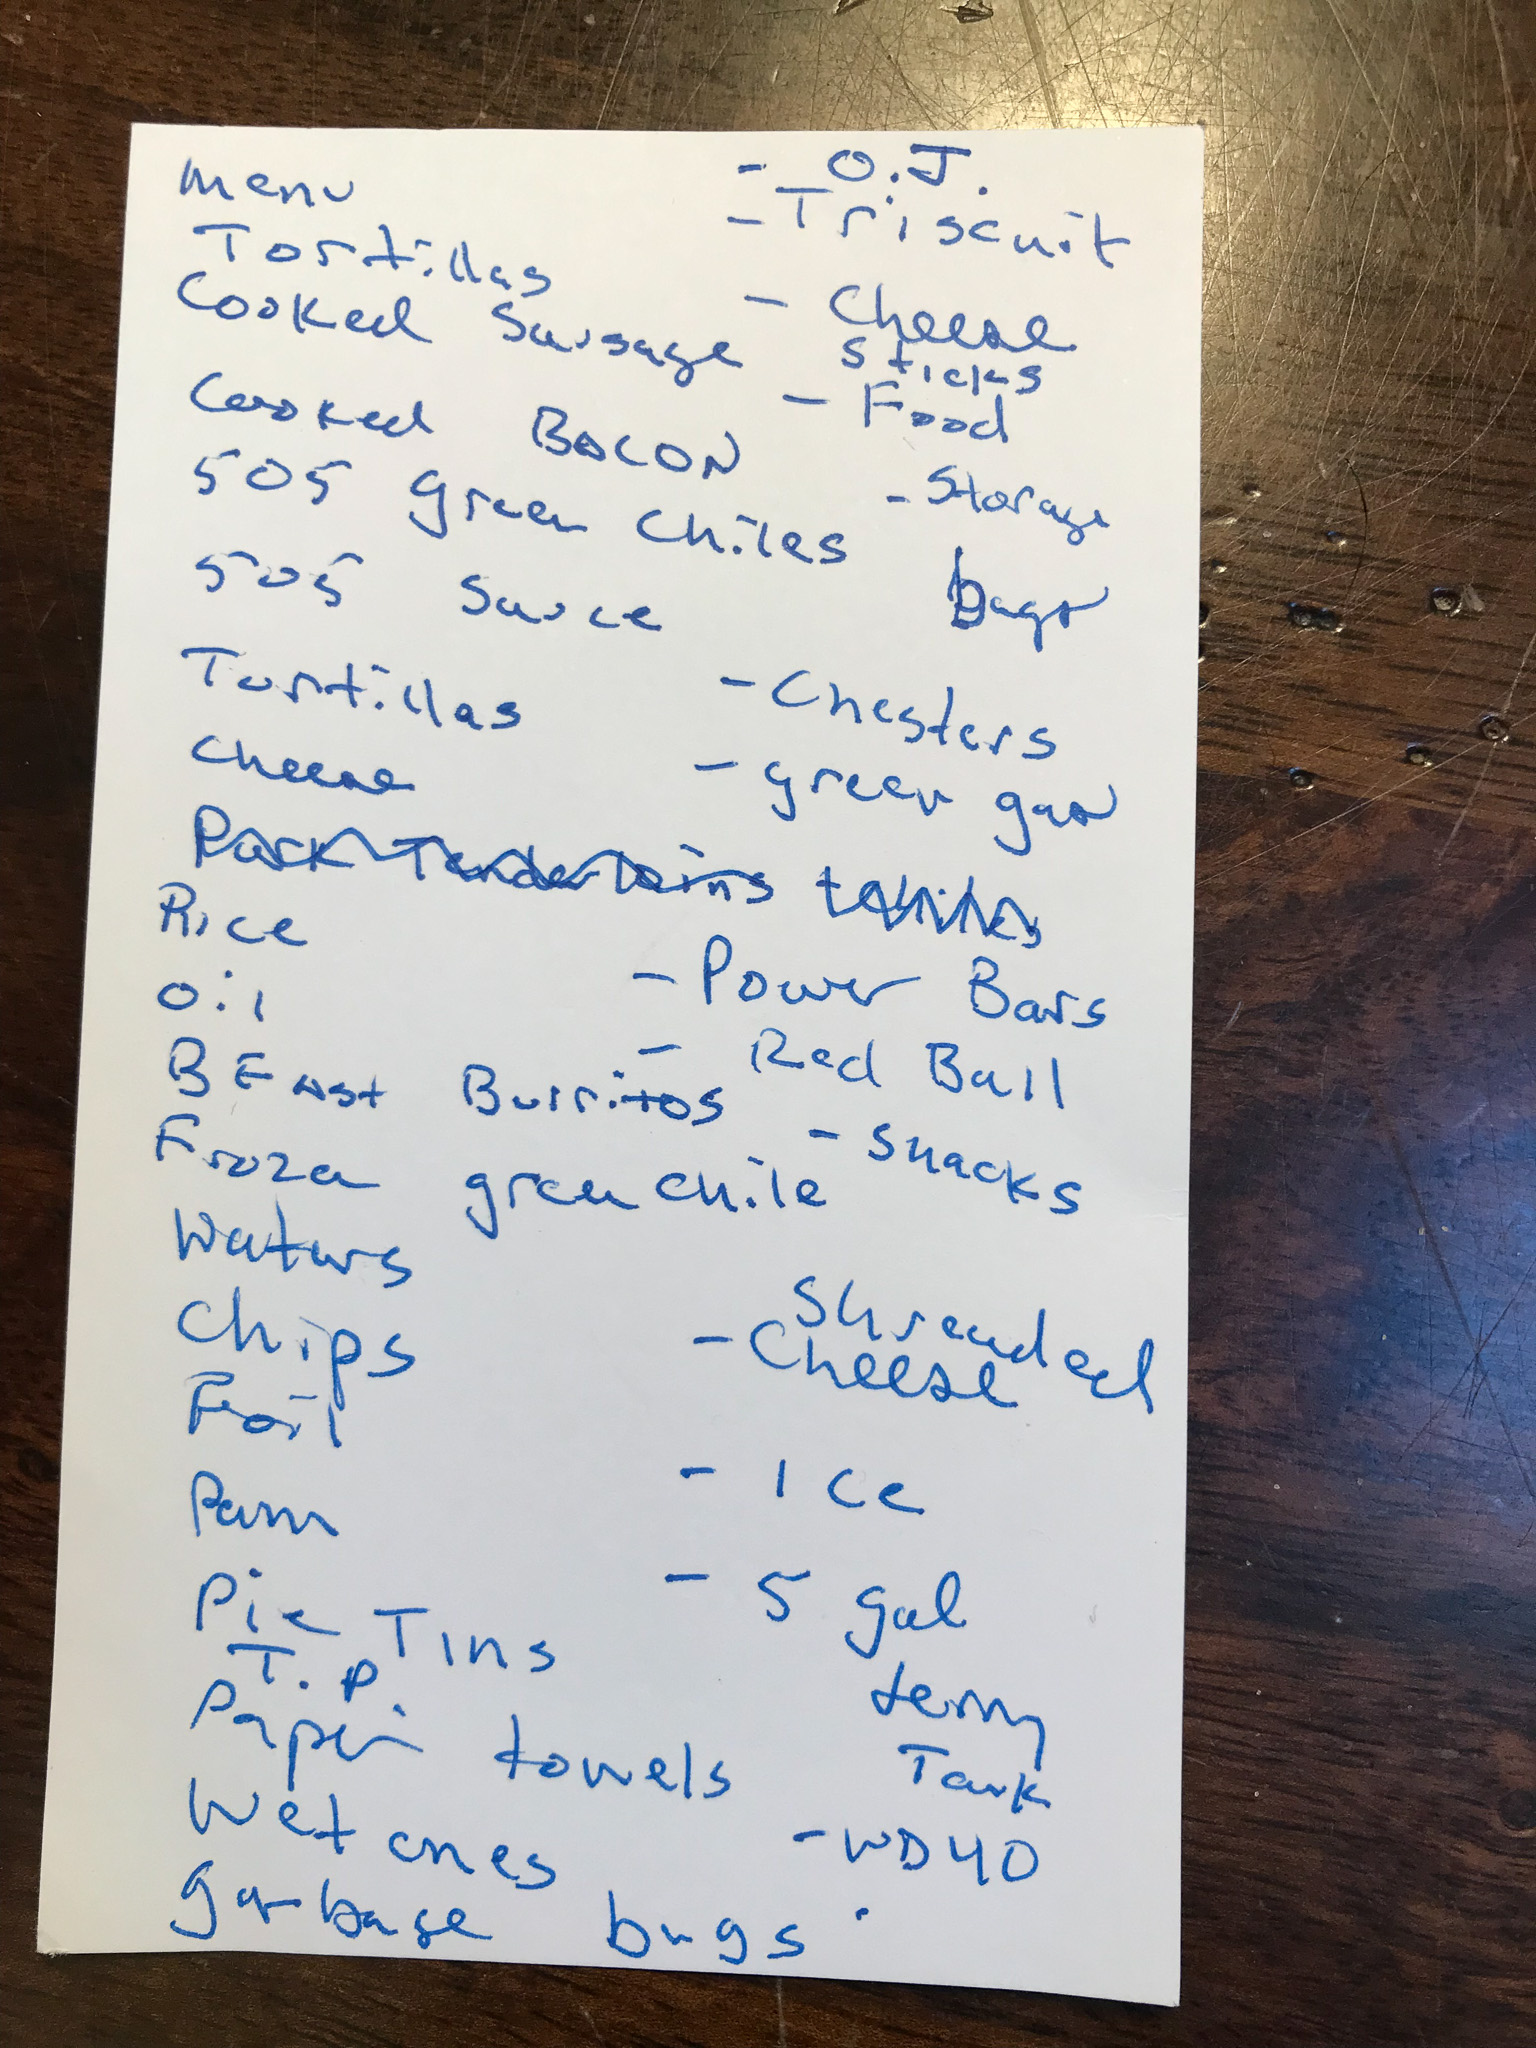 menu
Tortillas
Cooked Sausage
Cooked BACON
505 green chiles
505 Sauce
Tortillas
Cheese
Pork Tenderloins
Rice
oil
BFast Burritos
Frozen green chile
Waters
Chips
Foil
Pam
Pie Tins
T.P.
Paper towels
Wet ones
garbage bags
- O.J.
- Triscuit
- Cheese
Sticks
- Food
- Storage
bags
- Chesters
- green gas
- Power Bars
- Red Bull
- snacks
Shreaded
- Cheese
- Ice
- 5 gal
Jerry
Tank
- WD40